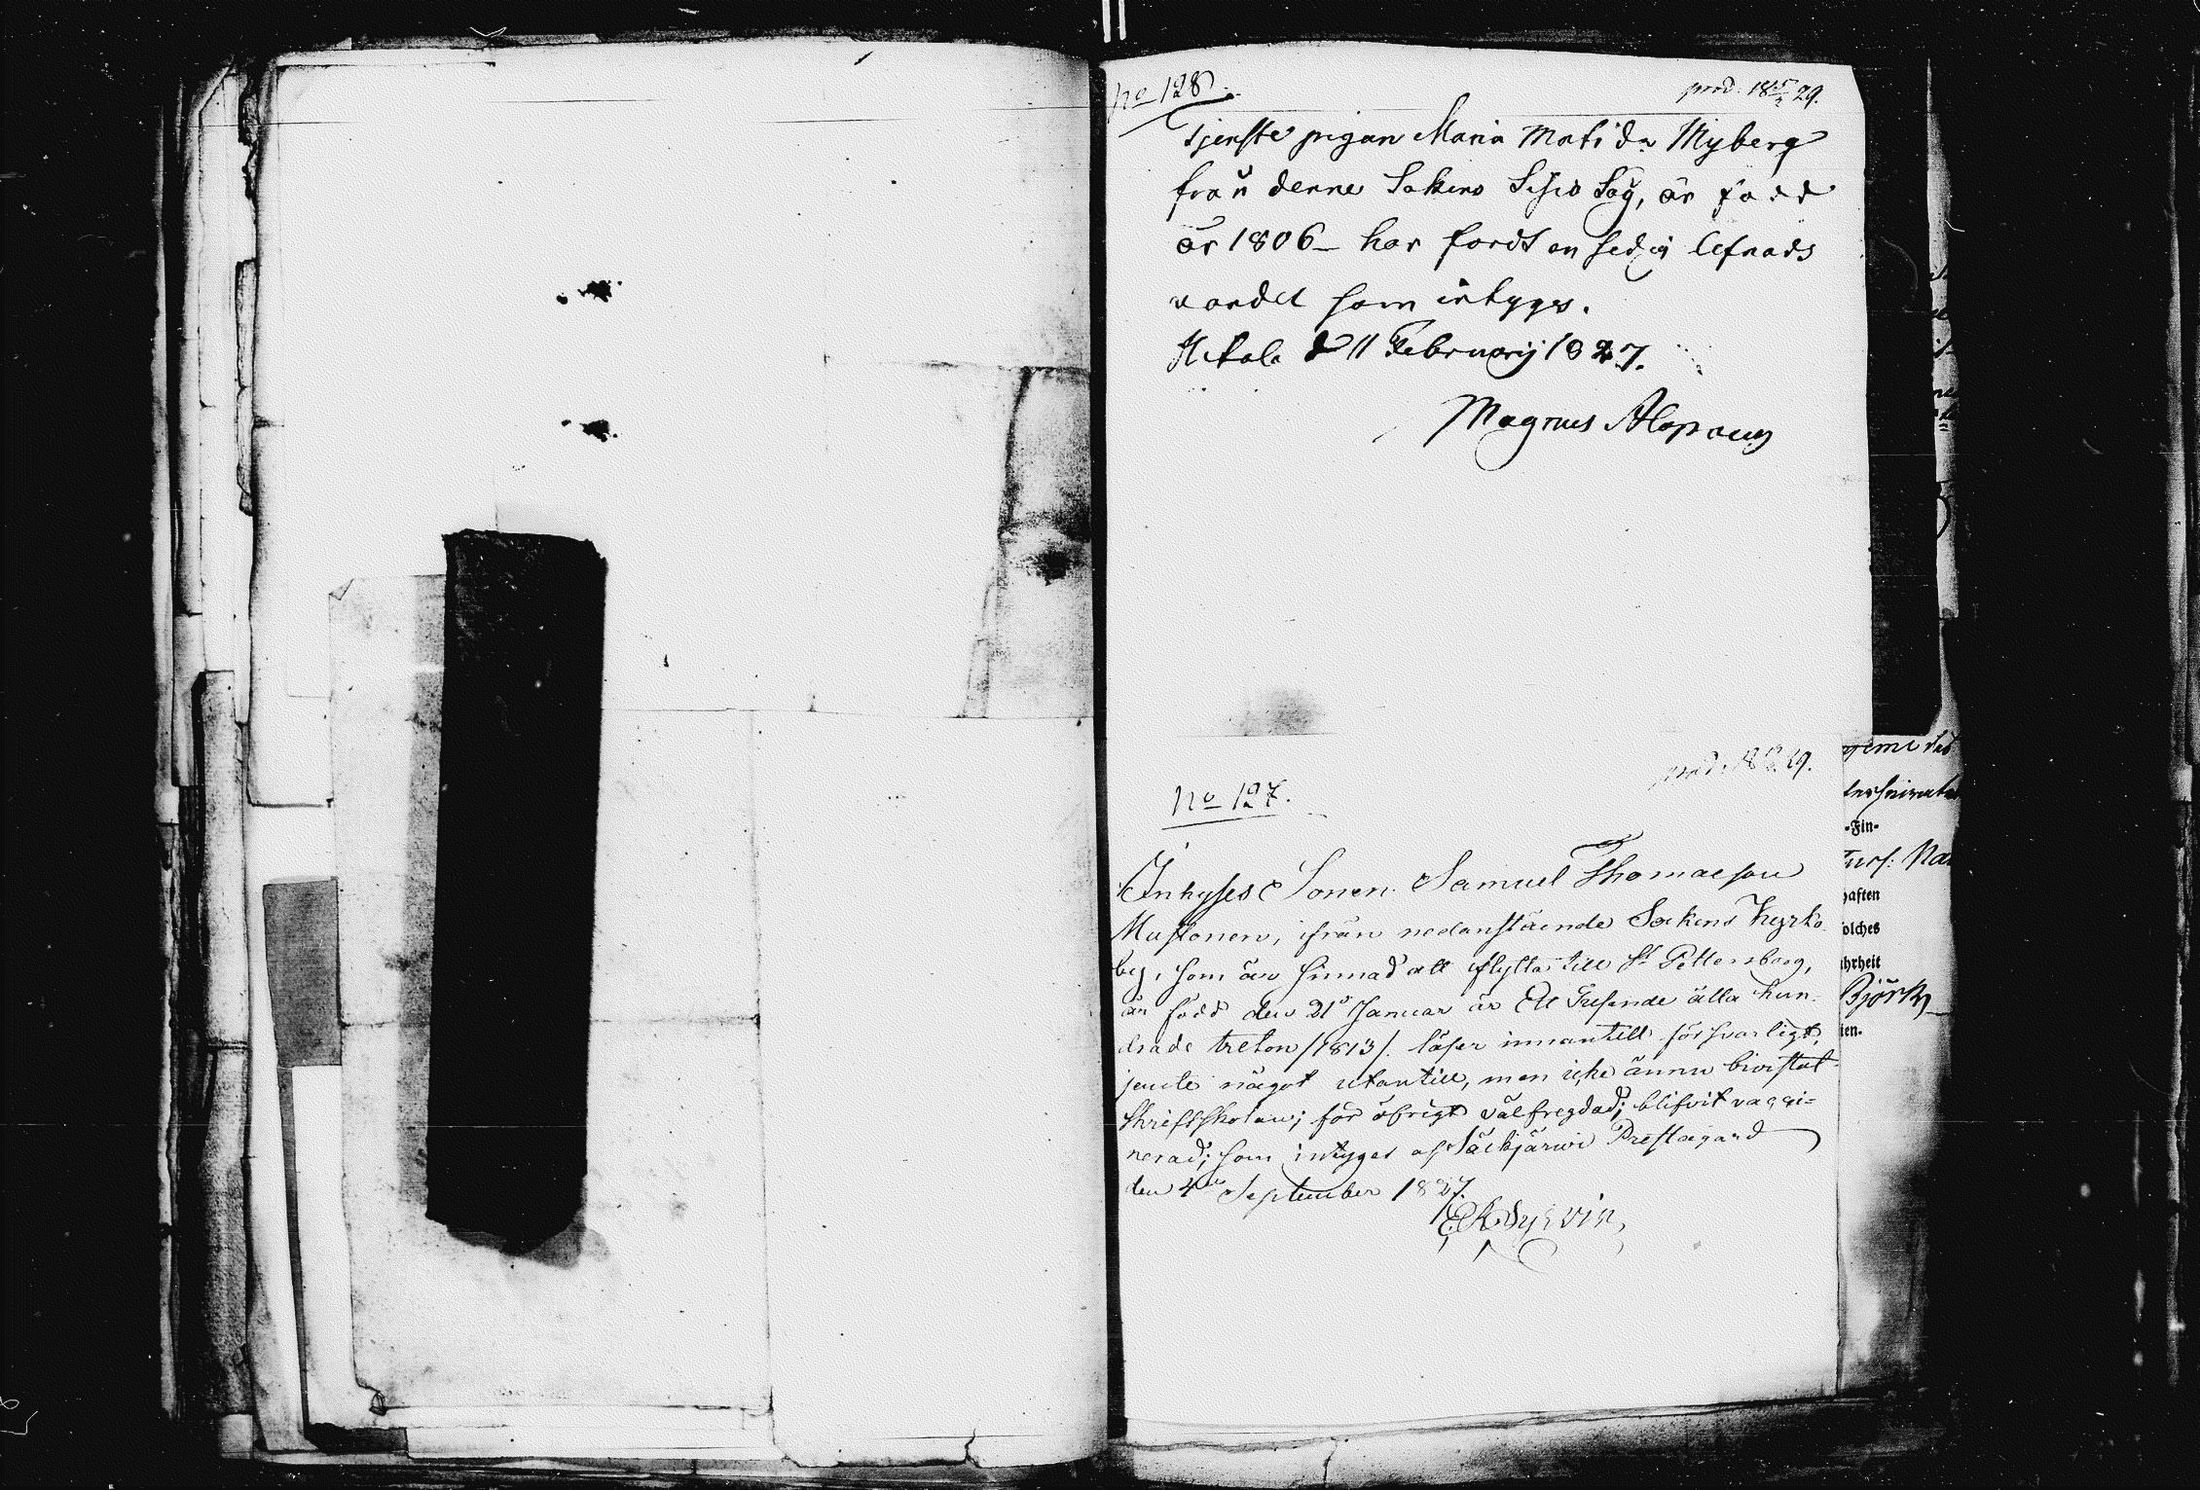 No 128
prod. 18 29.
Tjenste pigan Maria Matilda Myberg
från denne Sokens Såg, är född
år 1806 – har fördt en sedig lefnads
vandel som intyges.
d 11 Februarij 1827.
Magnus Alopaeus
prod. 18 29.
No 127.
Inhyses Sonen Samuel Thomasson
Mustonen, ifrån nedanstående Sockens Kyrko
by, som är sinnad att flytta till St Pettersborg,
är född den 21 Januar år Ett Tusende åtta hun-
drade tretton /1813/. läser innantill försvarligt,
jemte något utantill, men icke ännu bivistat
skriftskolan; för öfrigt välfregdad; blifvit vacci=
nerad; som intyges af Säckjärvi Prestagård
den 4de September 1827.
gemedas
-Fin-
Nar
haften
solches
ahrheit
Björk
ien.